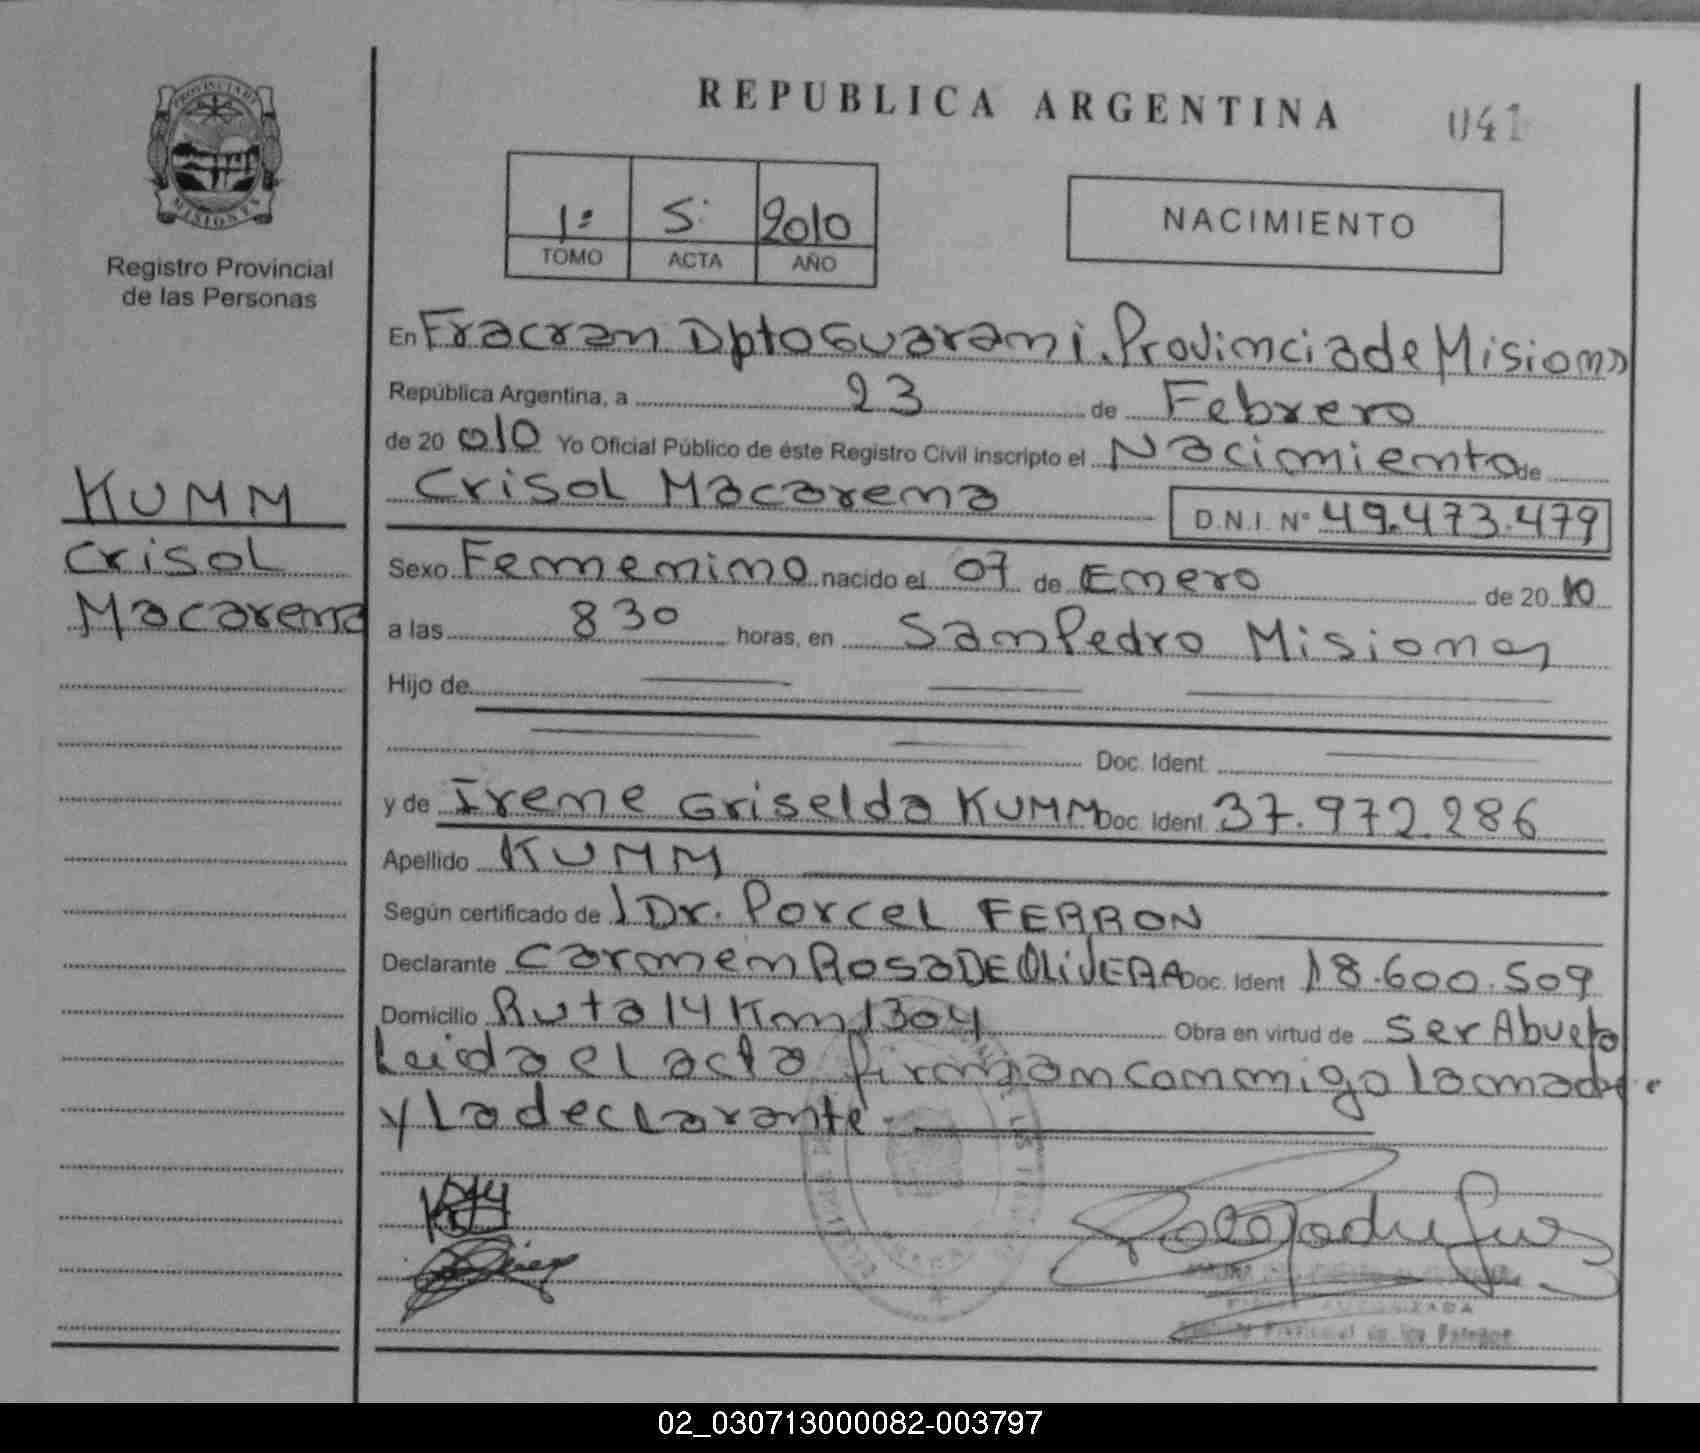 PROVINCIA DE
MISIONES
Registro Provincial
de las Personas
REPUBLICA ARGENTINA 041
1º 5: 2010
TOMO ACTA AÑO
NACIMIENTO
En Fracran Dpto Guarani. Provincia de Misiones
República Argentina, a 23 de Febrero
de 20 010 Yo Oficial Público de éste Registro Civil inscripto el Nacimiento de
Crisol Macarena D.N.I. Nº 49.473.479
KUMM
Crisol
Macarena
Sexo Femenino nacido el 07 de Enero de 20 10
a las 8 30 horas, en San Pedro Misiones
Hijo de
Doc. Ident.
y de Irene Griselda KUMM Doc. Ident. 37.972.286
Apellido KUMM
Según certificado de Dr. Porcel FERRON
Declarante Carmen Rosa DE OLIVERA Doc. Ident 18.600.509
Domicilio Ruta 14 Km 1304 Obra en virtud de ser Abuela
Leida el acta firman conmigo la madre
y la declarante.
AUTORIZADA
02_030713000082-003797